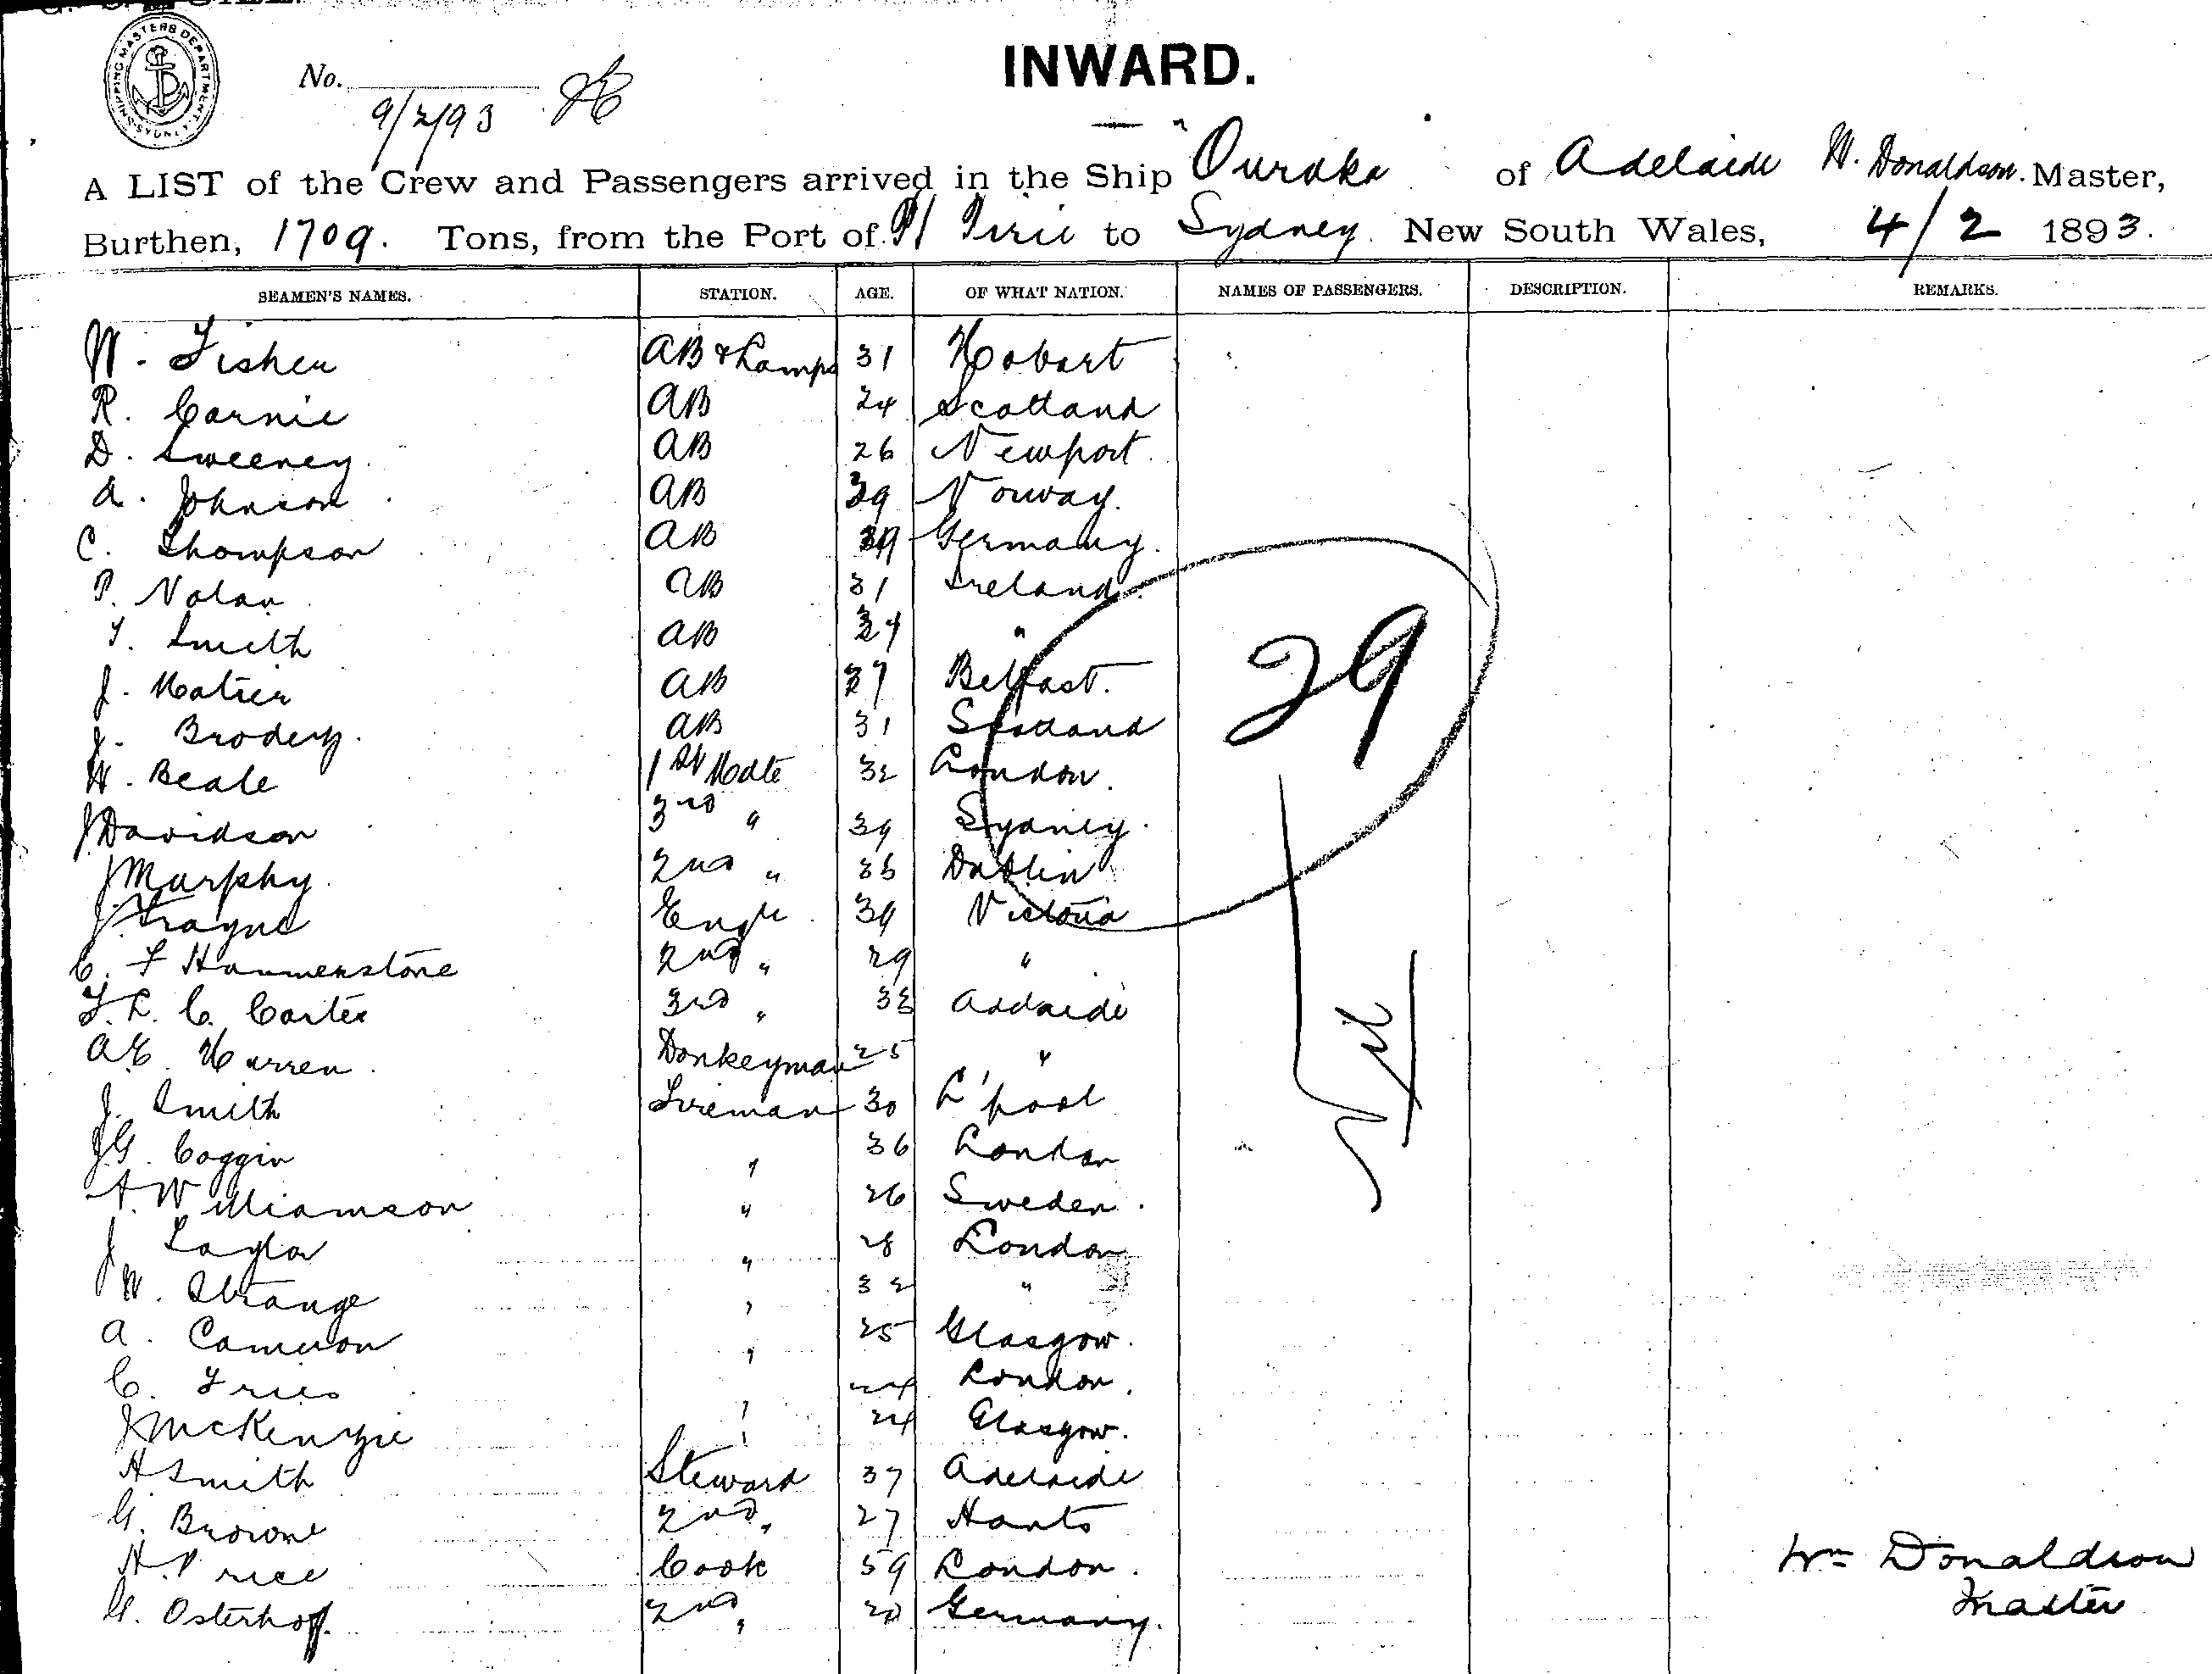 SHIPPING MASTERS DEPARTMENT SYDNEY
No.
9/2/93
INWARD.
A LIST of the Crew and Passengers arrived in the Ship "Ouraka of Adelaide W. Donaldson. Master,
Burthen, 1709. Tons, from the Port of Pt Pirie to Sydney. New South Wales, 4/2 1893.
SEAMEN'S NAMES. STATION. AGE. OF WHAT NATION. NAMES OF PASSENGERS. DESCRIPTION. REMARKS.
W. Fisher AB & Lamps 31 Hobart
R. Carnie AB 24 Scotland
D. Sweeney. AB 26 Newport.
A. Johnson AB 39 Norway.
C. Thompson AB Germany.
P. Nolan AB 31 Ireland.
T. Smith AB "
J. Matier AB 27 Belfast.
J. Brodey. AB 31 Scotland
W. Beale 1st Mate 32 London.
J Davidson 3rd " 39 Sydney.
J Murphy. 2nd " 35 Dublin
J. Trayne Engr. 39 Victoria
C. F Hammerstone 2nd " 29 "
F. L. C. Carter 3rd " 33 Adelaide
A E. Warren. Donkeyman 25 "
J. Smith Fireman 30 L'pool
J G. Coggin " 36 London
A. Williamson " 26 Sweden.
J Taylor " 28 London
W. Strange " 32 "
A. Cameron " 25 Glasgow.
C. Fries " 24 London.
J McKenzie " 24 Glasgow.
H Smith Steward 37 Adelaide
G. Browne 2nd " 27 Hants
H. Price Cook 59 London.
G. Osterhoff. 2nd " Germany.
29
Nil
Wm Donaldson
Master